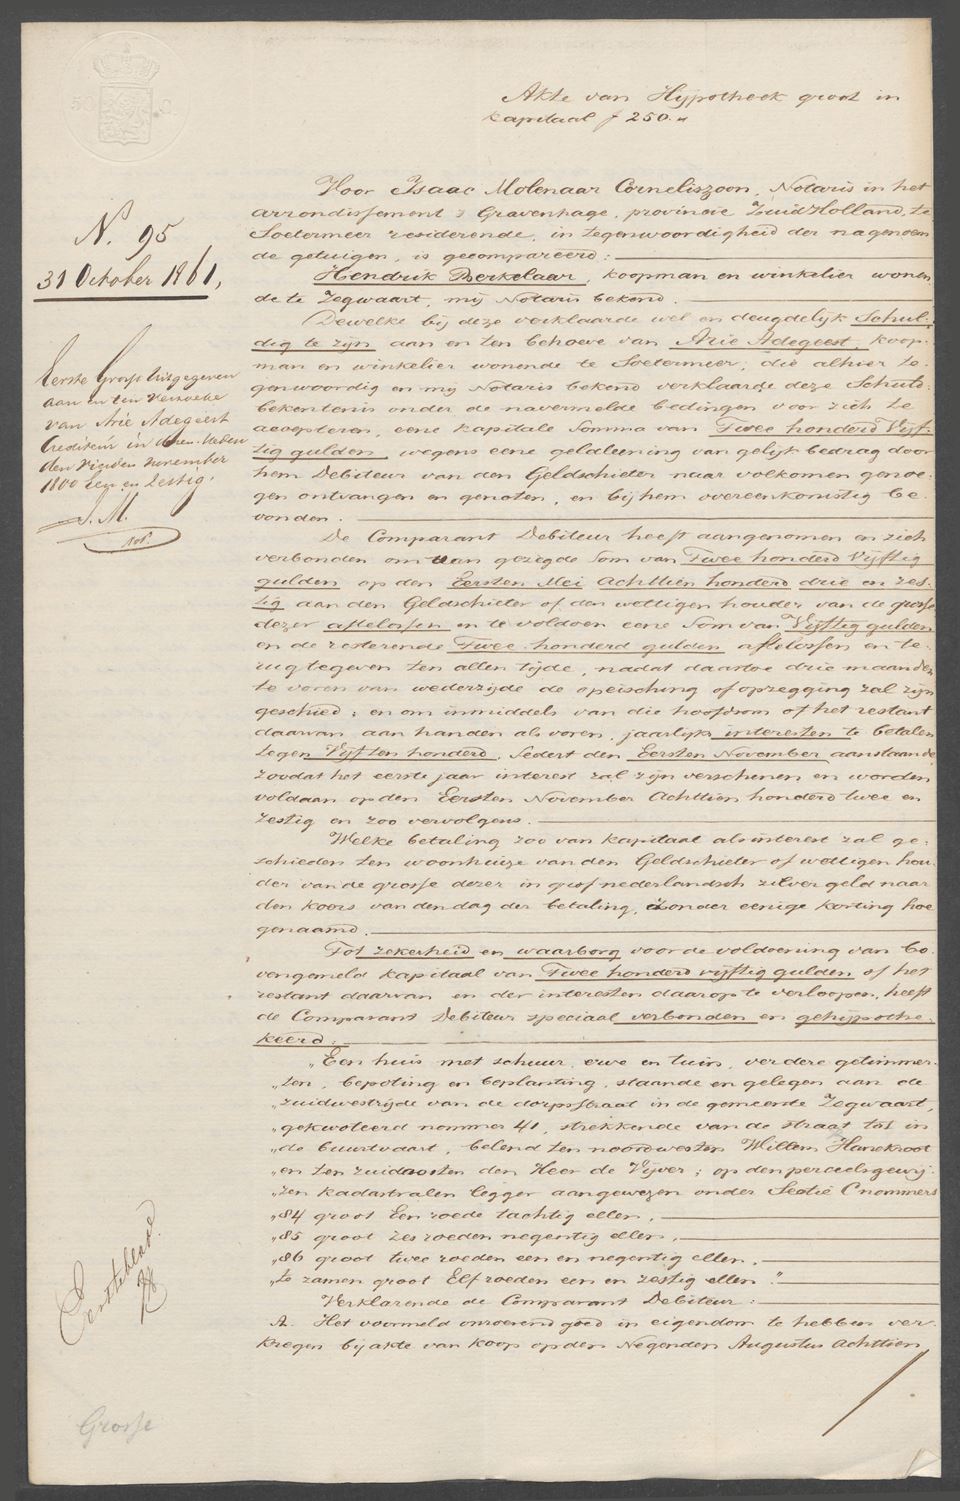 50 C.
Akte van Hypotheek groot in
kapitaal f 250.„
N. 95
31 October 1861,
Eerste Grosse uitgegeven
aan en ten verzoeke
van Arie Adegeest
Crediteur in dezen. Heden
den vierden november
1800 Een en Zestig.
I. M.
not.
Voor Isaac Molenaar Corneliszoon, Notaris in het
arrondissement 's Gravenhage, provincie Zuid Holland, te
Soetermeer residerende, in tegenwoordigheid der nagenoem
de getuigen, is gecompareerd:
Hendrik Berkelaar, koopman en winkelier wonen
de te Zegwaart, mij Notaris bekend.
Dewelke bij deze verklaarde wel en deugdelijk Schul-
dig te zijn aan en ten behoeve van Arie Adegeest, koop-
man en winkelier wonende te Soetermeer, die alhier te-
genwoordig en mij Notaris bekend verklaarde deze Schuld-
bekentenis onder de navermelde bedingen voor zich te
accepteren, eene kapitale Somma van Twee honderd Vijf-
tig gulden, wegens eene geldleening van gelijk bedrag door
hem Debiteur van den Geldschieter naar volkomen genoe-
gen ontvangen en genoten, en bij hem overeenkomstig be-
vonden.
De Comparant Debiteur heeft aangenomen en zich
verbonden om van gezegde Som van Twee honderd Vijftig
gulden op den Eersten Mei Achttien honderd drie en zes-
tig aan den Geldschieter of den wettigen houder van de grosse
dezer afte lossen en te voldoen eene Som van Vijftig gulden
en de resterende Twee honderd gulden aftelossen en te-
rug tegeven ten allen tijde, nadat daartoe drie maanden
te voren van wederzijde de opeisching of opzegging zal zijn
geschied; en om inmiddels van die hoofdsom of het restant
daarvan aan handen als voren, jaarlijks interesten te betalen
tegen Vijf ten honderd, Sedert den Eersten November aanstaande
zoodat het eerste jaar interest zal zijn verschenen en worden
voldaan op den Eersten November Achttien honderd twee en
zestig en zoo vervolgens.
Welke betaling zoo van kapitaal als interest zal ge-
schieden ten woonhuize van den Geldschieter of wettigen hou-
der van de grosse dezer in grof nederlandsch zilver geld naar
den koers van den dag der betaling, zonder eenige korting hoe
genaamd.
Tot zekerheid en waarborg voor de voldoening van bo-
vengemeld kapitaal van Twee honderd vijftig gulden of het
restant daarvan en der interesten daarop te verloopen, heeft
de Comparant Debiteur speciaal verbonden en gehypothe-
keerd:
„Een huis met schuur, erve en tuin, verdere getimmer-
„ten, bepoting en beplanting, staande en gelegen aan de
„zuidwestzijde van de dorpsstraat in de gemeente Zegwaart,
„gekwoteerd nommer 41, strekkende van de straat tot in
„de buurtvaart, belend ten noordwesten Willem Hanekroot
„en ten zuidoosten den Heer de Vijver; op den perceelsgewij-
„zen kadastralen legger aangewezen onder Sectie C nommers
„84 groot Een roede tachtig ellen,
„85 groot zes roeden negentig ellen,
„86 groot twee roeden een en negentig ellen,
„te zamen groot Elf roeden een en zestig ellen."
Verklarende de Comparant Debiteur:
A. Het voormeld onroerend goed in eigendom te hebben ver-
kregen bij akte van koop op den Negenden Augustus Achttien
Eerste blad.
Grosse